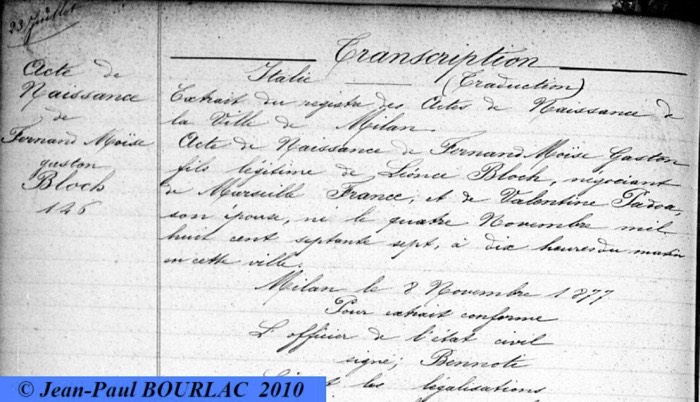 23 Juillet
Acte de
Naissance
de
Fernand Moïse
gaston
Bloch
146
Transcription
Italie (Traduction)
Extrait du registre des Actes de Naissance de
la Ville de Milan.
Acte de Naissance de Fernand Moïse Gaston
fils légitime de Léonce Bloch, négociant
de Marseille France, et de Valentine Padoa,
son épouse, né le quatre Novembre mil
huit cent septante sept, à dix heures du matin
en cette ville.
Milan le 8 Novembre 1877
Pour extrait conforme
L'officier de l'état civil
signé; Bennote
les légalisations
© Jean-Paul BOURLAC 2010